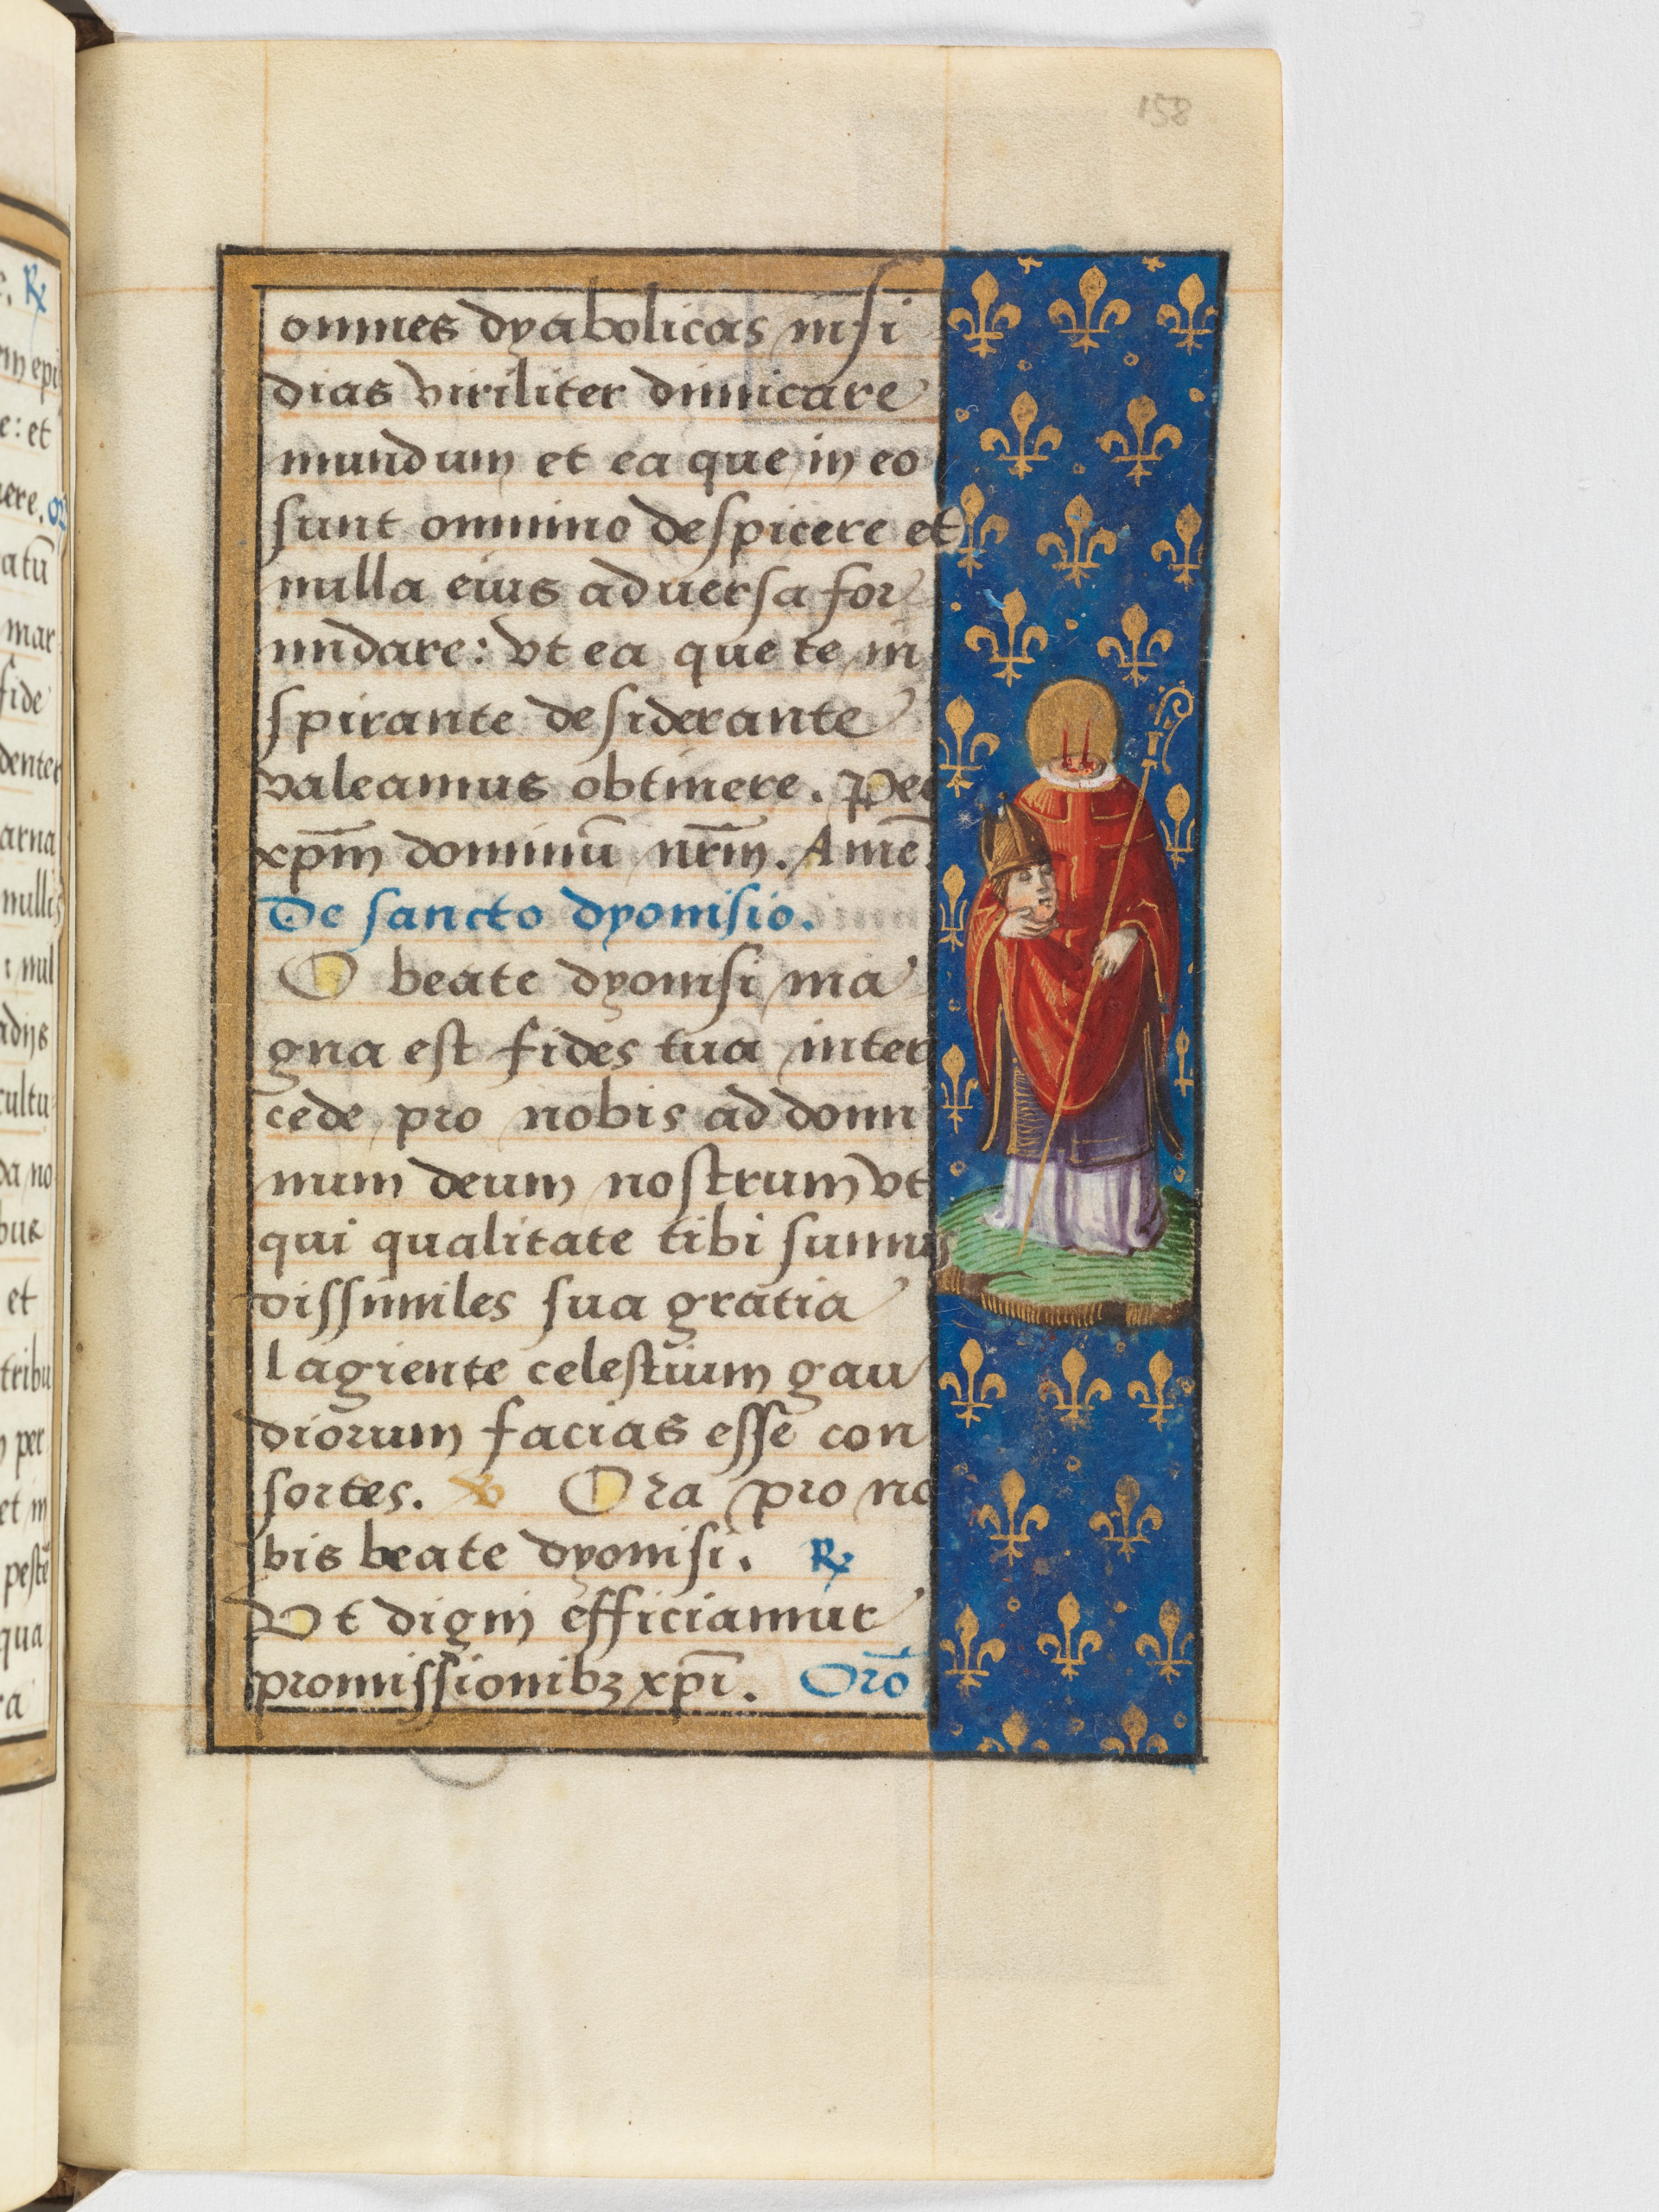 158
omnes dyabolicas insi
dias viriliter dimicare
mundum et ea que in eo
sunt omnino despicere et
nulla eius aduersa for
midare: vt ea que te in
spirante desiderante
valeamus obtinere. Per
xpm̄ dominū nr̄m. Amē
De sancto dyonisio.
O beate dyonisi ma
gna est fides tua inter
cede pro nobis ad domi
num deum nostrum vt
qui qualitate tibi sumus
dissimiles sua gratia
lagiente celestium gau
diorum facias esse con
sortes. ℣ Ora pro no
bis beate dyonisi. ℟
Vt digni efficiamur
promissionibꝫ xpī. Orō